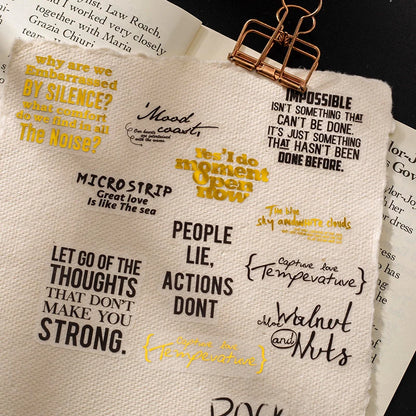 ents, Law Roach.
and I worked very closely
together with Maria
Grazia Chiuri
why are we
Embarrassed
BY SILENCE?
what comfort
do we find in all
The Noise?
'Mood
coast,
Our hearts are intertwined
with the waves
IMPOSSIBLE
ISN'T SOMETHING THAT
CAN'T BE DONE.
IT'S JUST SOMETHING
THAT HASN'T BEEN
DONE BEFORE.
Yes'I do
moment
Open
now
MICROSTRIP
Great love
Is like The sea
The blue
sky and white clouds
PEOPLE
LIE,
ACTIONS
DONT
Capture love
{Tempevature}
LET GO OF THE
THOUGHTS
THAT DON'T
MAKE YOU
STRONG.
Capture love
{Tempevature}
Walnut
chloe and
Nuts
ROCK